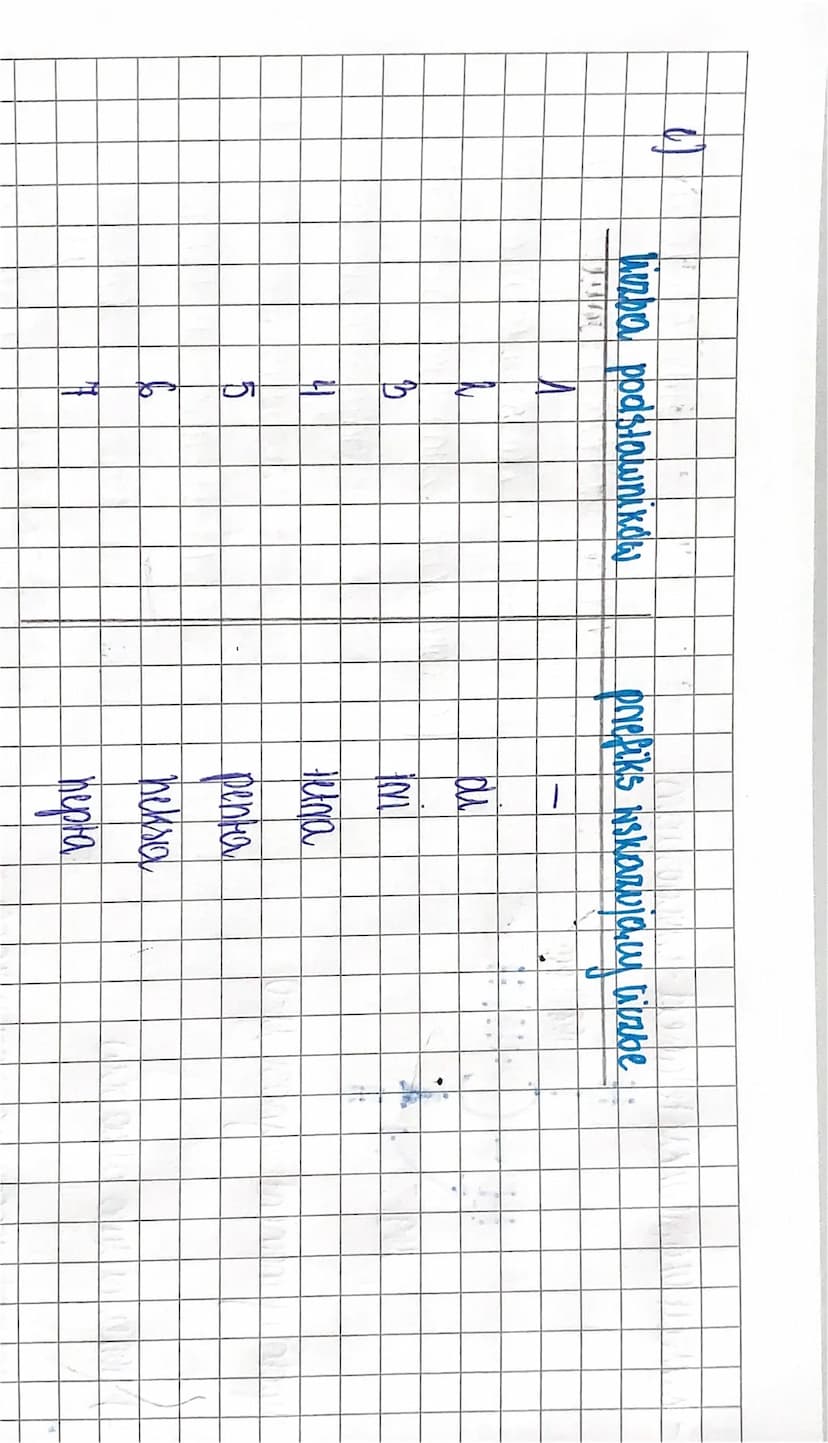 c)
liczba podstawników prefiks wskazujący liczbę
1 –
2 di
3 tri
4 tetra
5 penta
6 heksa
7 hepta